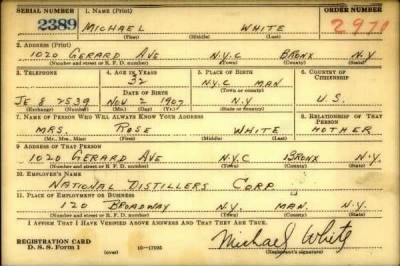 SERIAL NUMBER 1. NAME (Print) ORDER NUMBER
2389 MICHAEL WHITE 2971
(First) (Middle) (Last)
2. ADDRESS (Print)
1020 GERARD AVE N.Y.C BRONX N.Y
(Number and street or R. F. D. number) (Town) (County) (State)
3. TELEPHONE 4. AGE IN YEARS 5. PLACE OF BIRTH 6. COUNTRY OF CITIZENSHIP
32 N.Y.C MAN
DATE OF BIRTH (Town) (County)
JE 8 7539 NOV 2 1907 N.Y U.S.
(Exchange) (Number) (Mo.) (Day) (Yr.) (State or country)
7. NAME OF PERSON WHO WILL ALWAYS KNOW YOUR ADDRESS 8. RELATIONSHIP OF THAT PERSON
MRS. ROSE WHITE MOTHER
(Mr., Mrs., Miss) (First) (Middle) (Last)
9. ADDRESS OF THAT PERSON
1020 GERARD AVE N.Y.C BRONX N.Y.
(Number and street or R. F. D. number) (Town) (County) (State)
10. EMPLOYER'S NAME
NATIONAL DISTILLERS CORP.
11. PLACE OF EMPLOYMENT OR BUSINESS
120 BROADWAY N.Y. MAN. N.Y.
(Number and street or R. F. D. number) (Town) (County) (State)
I AFFIRM THAT I HAVE VERIFIED ABOVE ANSWERS AND THAT THEY ARE TRUE.
REGISTRATION CARD Michael White
D. S. S. FORM 1 (over) 16-17105 (Registrant's signature)